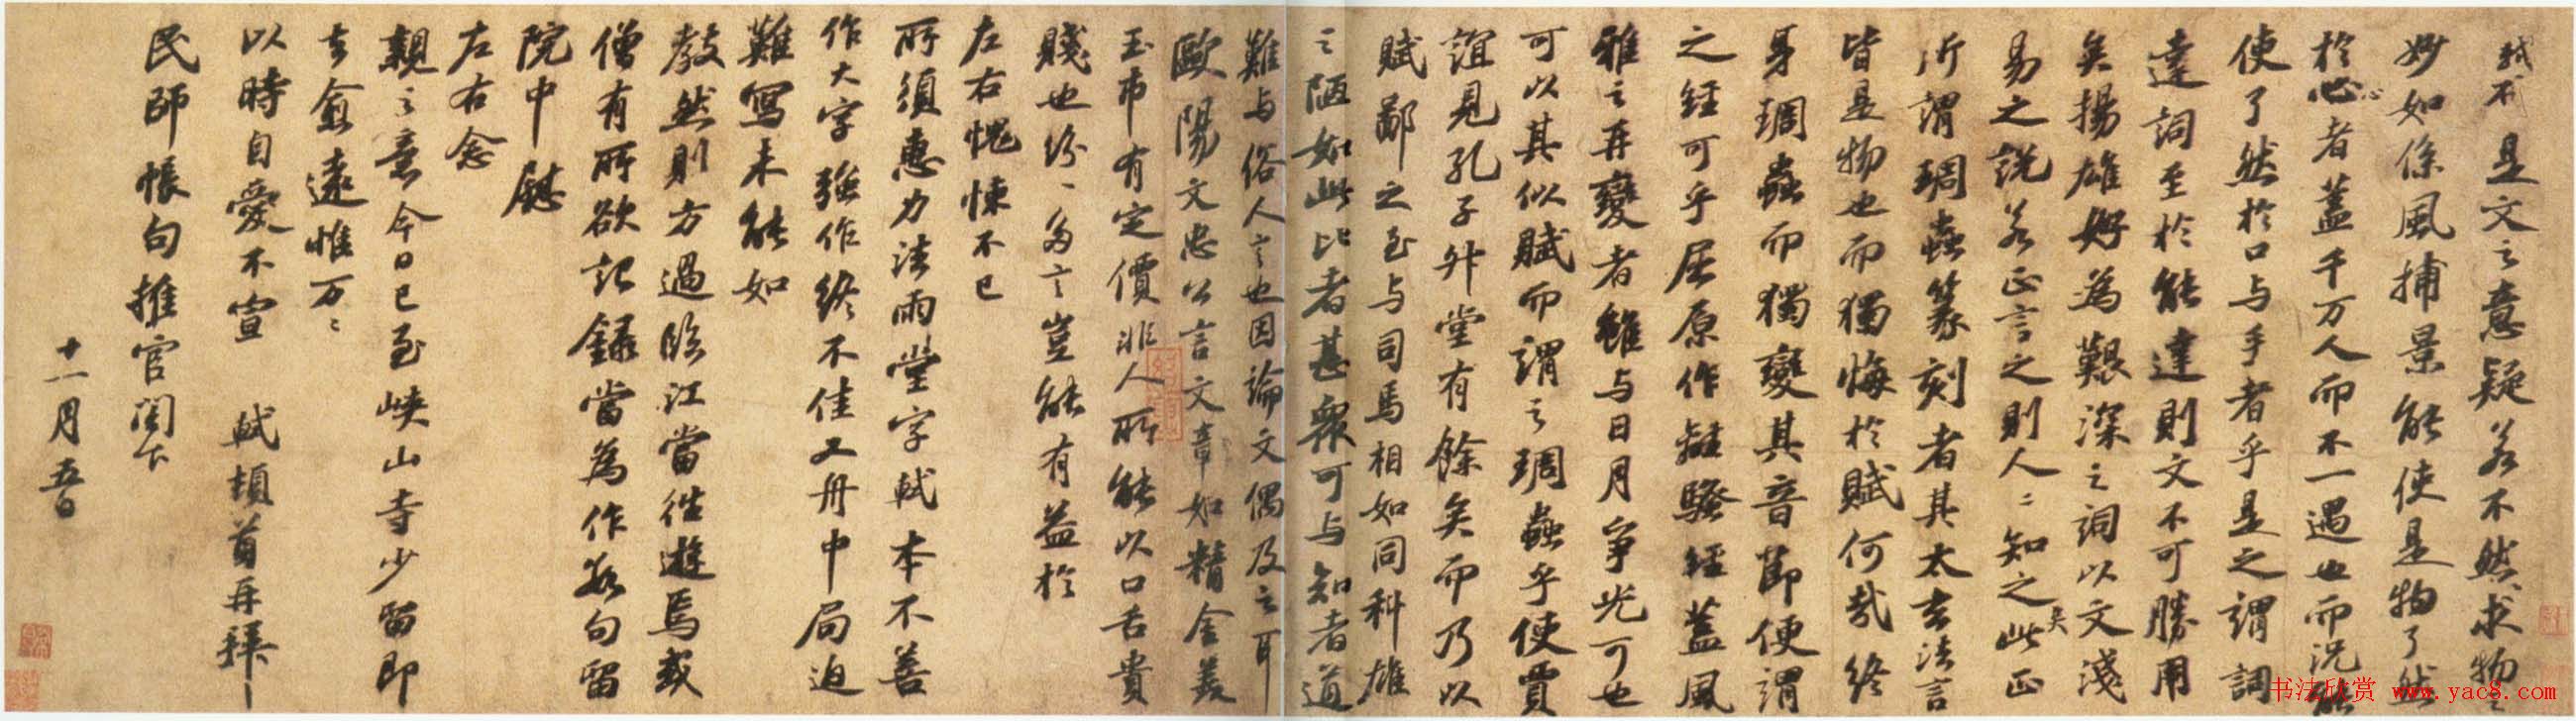 軾不
是文之意疑若不然求物之
妙如係風捕景能使是物了然
於心者蓋千万人而不一遇也而况能
使了然於口与手者乎是之謂詞
達詞至於能達則文不可勝用
矣揚雄好為艱深之詞以文淺
易之說若正言之則人〻知之矣此正
所謂琱蟲篆刻者其太玄法言
皆是物也而獨悔於賦何哉終
身琱蟲而獨變其音節便謂
之經可乎屈原作離騷經蓋風
雅之再變者雖与日月争光可也
可以其似賦而謂之琱蟲乎使賈
誼見孔子升堂有餘矣而乃以
賦鄙之至与司馬相如同科雄
之陋如此比者甚衆可与知者道
難与俗人言也因論文偶及之耳
歐陽文忠公言文章如精金美
玉市有定價非人所能以口舌貴
賤也紛〻多言豈能有益於
左右愧悚不已
所須惠力法雨堂字軾本不善
作大字強作終不佳又舟中局迫
難寫未能如
教然則方過臨江當往遊焉或
僧有所欲記錄當為作數句留
院中慰
左右念
親之意今日已至峽山寺少留即
去愈遠惟万〻
以時自愛不宣 軾頓首再拜
民師帳句推官閣下
十一月五日
书法欣赏 www.yac8.com